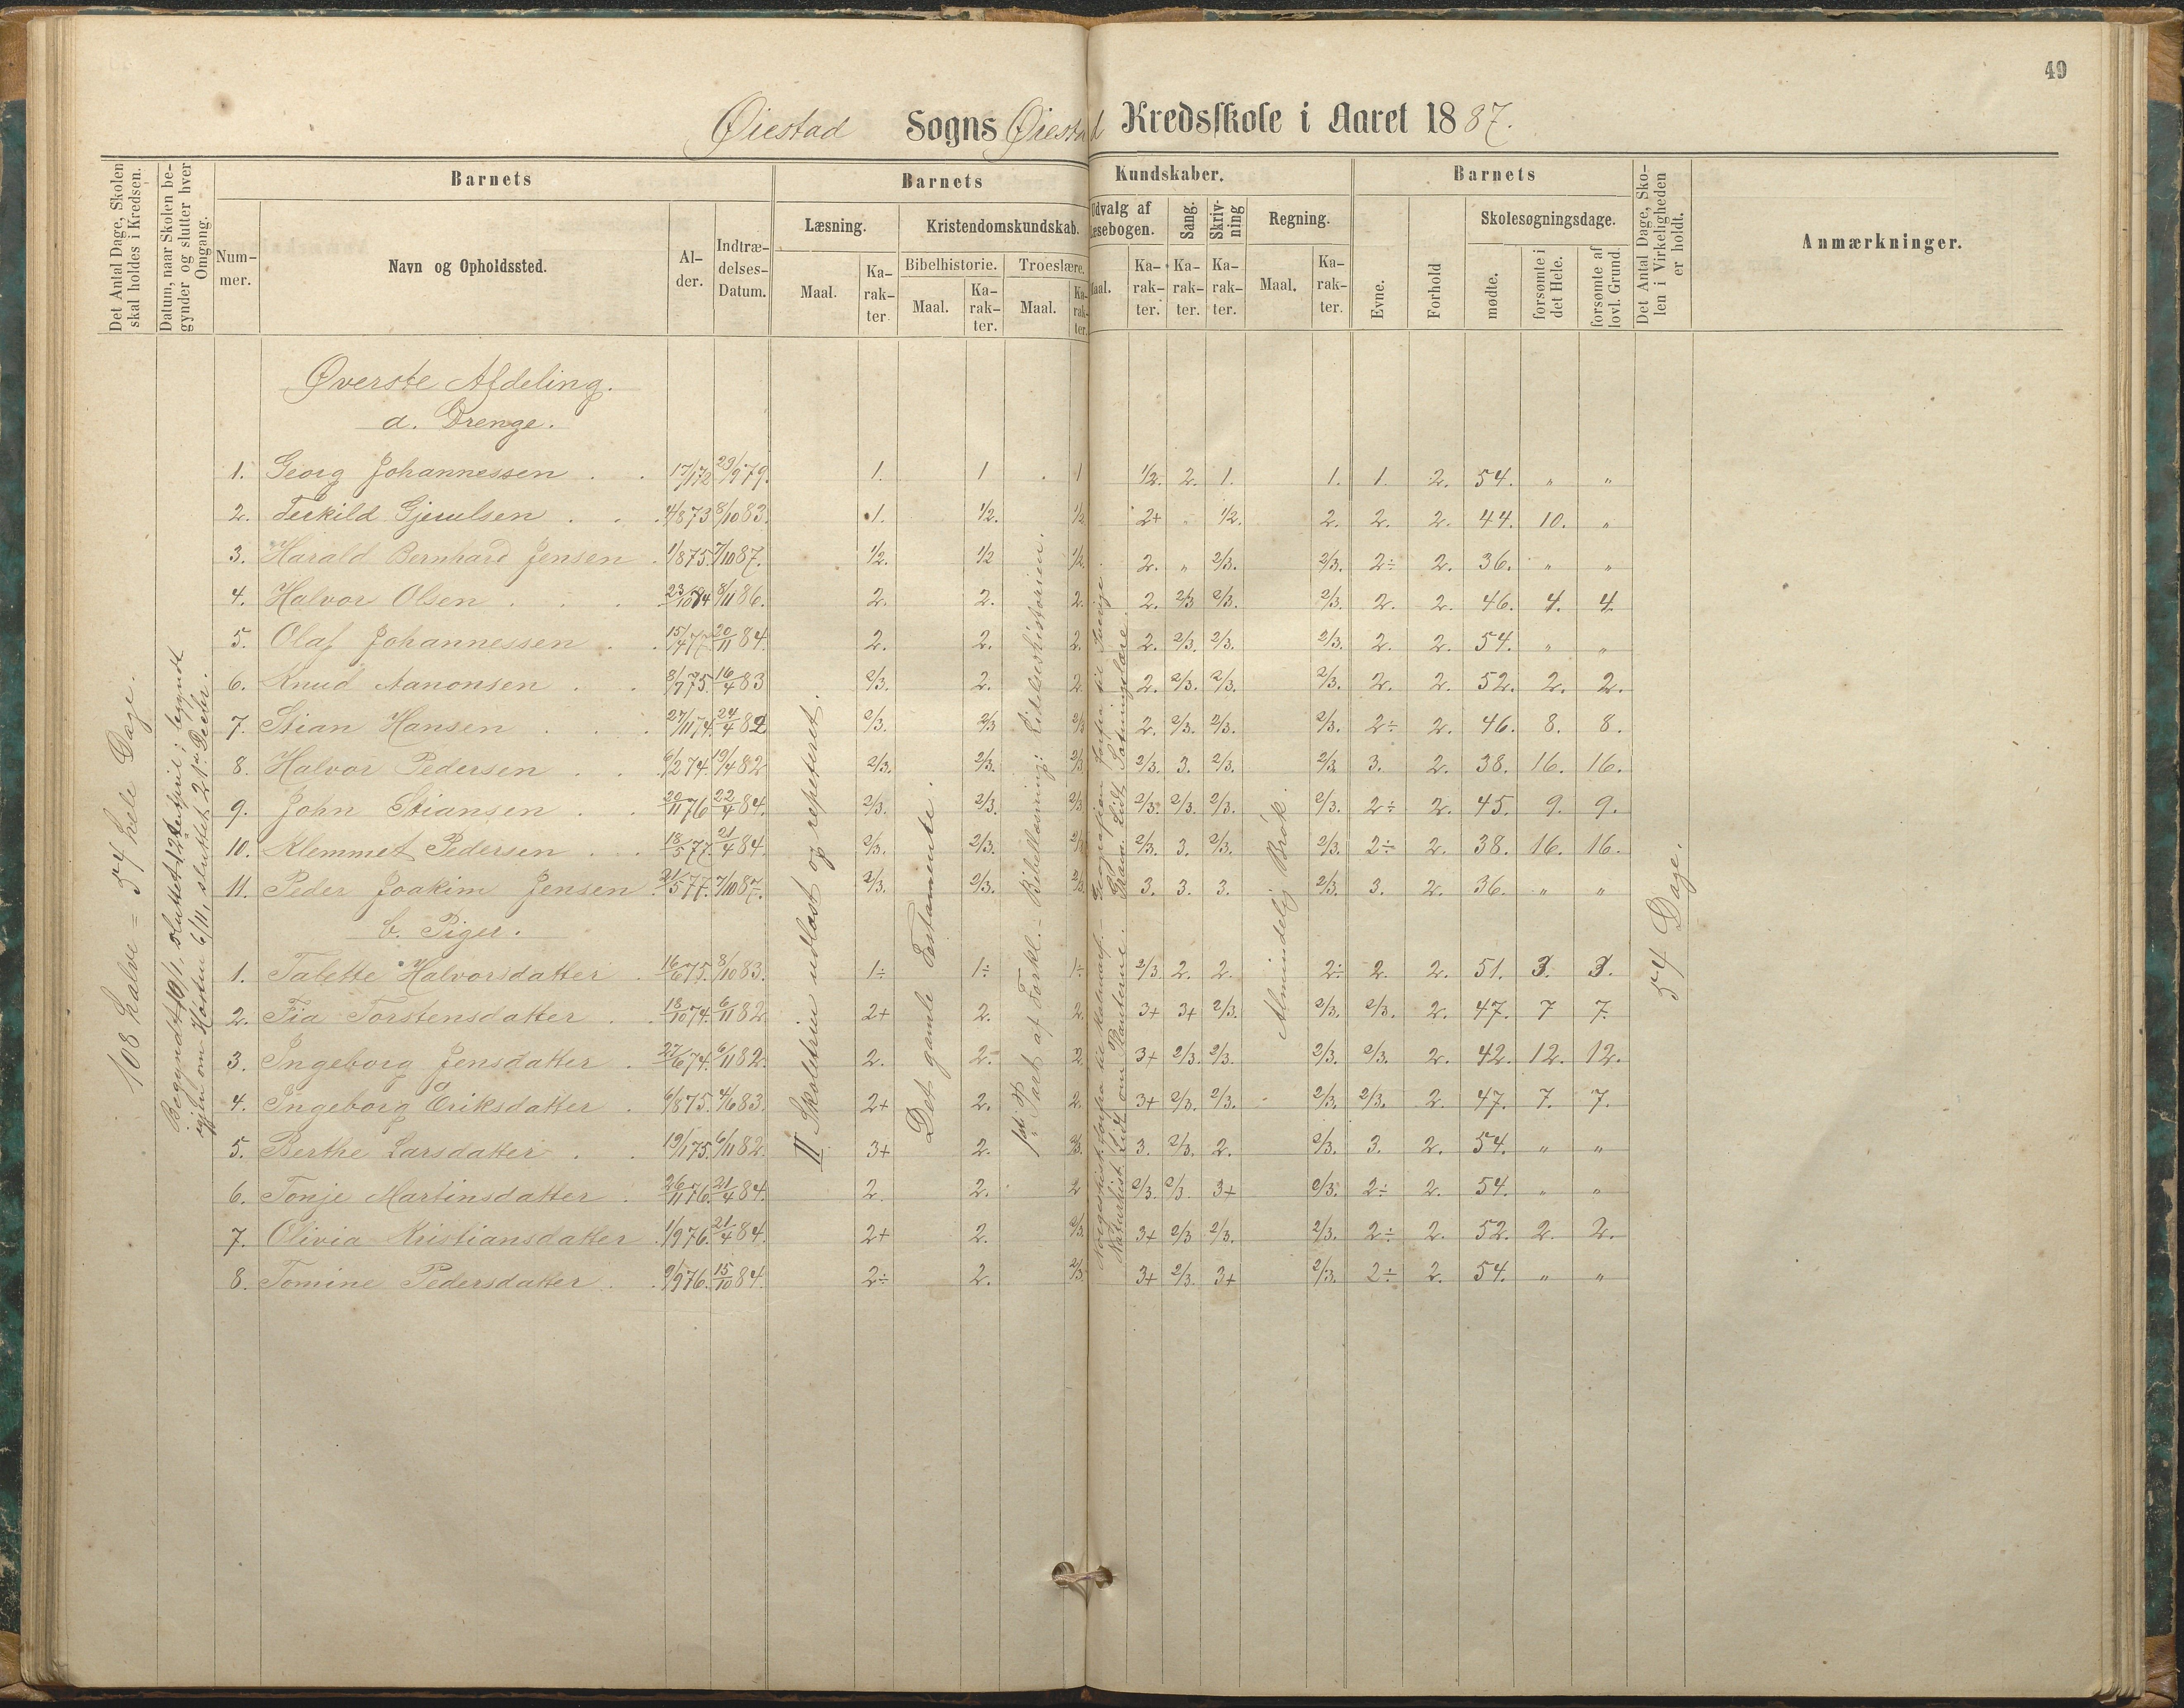 49
Øiestad Sogns Øiestad Kredsskole i Aaret 1887.
Det Antal Dage, Skolen skal holdes i Kredsen.
Datum, naar Skolen begynder og slutter hver Omgang.
Barnets
Nummer.
Navn og Opholdssted.
Alder.
Indtrædelses-Datum.
Barnets Kundskaber.
Læsning.
Maal.
Karakter
Kristendomskundskab.
Bibelhistorie.
Maal.
Karakter.
Troeslære.
Maal.
Karakter.
Udvalg af Læsebogen.
Maal.
Karakter.
Sang.
Karakter.
Skrivning
Karakter.
Regning.
Maal.
Karakter.
Barnets
Evne.
Forhold
Skolesøgningsdage.
mødte.
forsømte i det Hele.
forsømte af lovl. Grund.
Det Antal Dage, Skolen i Virkeligheden er holdt.
Anmærkninger.
108 halve = 54 hele Dage.
Begyndt 10/1, sluttet 12te April; begyndt
igjen om Høsten 6/11, sluttet 21de Decbr.
II Skoletrin udlæst og repeteret.
Det gamle Testamente.
1ste Part af Forkl. – Bibellæsning: Lidelseshistorien.
Almindelig Brøk.
54 Dage.
Øverste Afdeling.
a. Drenge.
1. Georg Johannessen . . 17/1 72 23/9 79. 1. 1 1 1/2. 2. 1. 1. 1. 2. 54. " "
2. Terkild Gjerulsen . . 4/8 73 8/10 83. 1. 1/2. 1/2 2+ " 1/2. 2. 2. 2. 44. 10. "
3. Harald Bernhard Jensen . 1/8 75. 7/10 87. 1/2. 1/2 1/2. 2. " 2/3. 2/3. 2÷ 2. 36. " "
4. Halvor Olsen . . . 23/10 74 8/11 86. 2. 2. 2. 2. 2/3 2/3. 2/3. 2. 2. 46. 4. 4.
5. Olaf Johannessen . . 15/4 7 20/11 84. 2. 2. 2. 2. 2/3. 2/3. 2/3. 2. 2. 54. " "
6. Knud Aanonsen . . 8/7 75. 16/4 83 2/3. 2. 2 2. 2/3. 2/3. 2/3. 2. 2. 52. 2. 2.
7. Stian Hansen . . . 27/11 74. 24/4 82 2/3. 2/3 2/3 2. 2/3. 2/3. 2/3. 2÷ 2. 46. 8. 8.
8. Halvor Pedersen . . 6/2 74. 19/4 82 2/3. 2/3. 2/3. 2/3. 3. 2/3. 2/3. 3. 2. 38. 16. 16.
9. John Stiansen . . 20/11 76 22/4 84. 2/3. 2/3. 2/3 2/3. 2/3. 2/3. 2/3. 2÷ 2. 45. 9. 9.
10. Klemmet Pedersen . . 18/5 77. 21/4 84. 2/3. 2/3. 2/3 2/3. 3. 2/3. 2/3. 2÷ 2. 38. 16. 16.
11. Peder Joakim Jensen . 21/5 77. 7/10 87. 2/3. 2/3. 2/3. 3. 3. 3. 2/3. 3. 2. 36. " "
b. Piger.
1. Talette Halvorsdatter . 16/6 75. 8/10 83. 1÷ 1÷ 1÷ 2/3. 2. 2. 2÷ 2. 2. 51. 3. 3.
2. Fia Torstensdatter . . 18/10 74. 6/11 82. 2+ 2. 2. 3+ 3+ 2/3. 2/3. 2/3. 2. 47. 7 7.
3. Ingeborg Jensdatter . 27/6 74. 6/11 82. 2. 2. 2. 3+ 2/3. 2/3. 2/3. 2/3. 2. 42. 12. 12.
4. Ingeborg Eriksdatter . 6/8 75. 4/6 83. 2+ 2. 2. 3+ 2/3. 2/3. 2/3. 2/3. 2. 47. 7. 7.
5. Berthe Larsdatter . . 19/1 75. 6/11 82. 3+ 2. 2/3. 3. 2/3. 2. 2/3. 3. 2. 54. " "
6. Tonje Martinsdatter . 26/11 76. 21/4 84. 2. 2. 2 2/3. 2/3. 3+ 2/3. 2÷ 2. 54. " "
7. Olivia Kristiansdatter . 1/9 76. 21/4 84. 2+ 2. 2/3. 3+ 2/3 2/3. 2/3. 2÷ 2. 52. 2. 2.
8. Tomine Pedersdatter . . 9/9 76. 15/10 84. 2÷ 2. 2/3. 3+ 2/3. 3+ 2/3. 2÷ 2. 54. " "